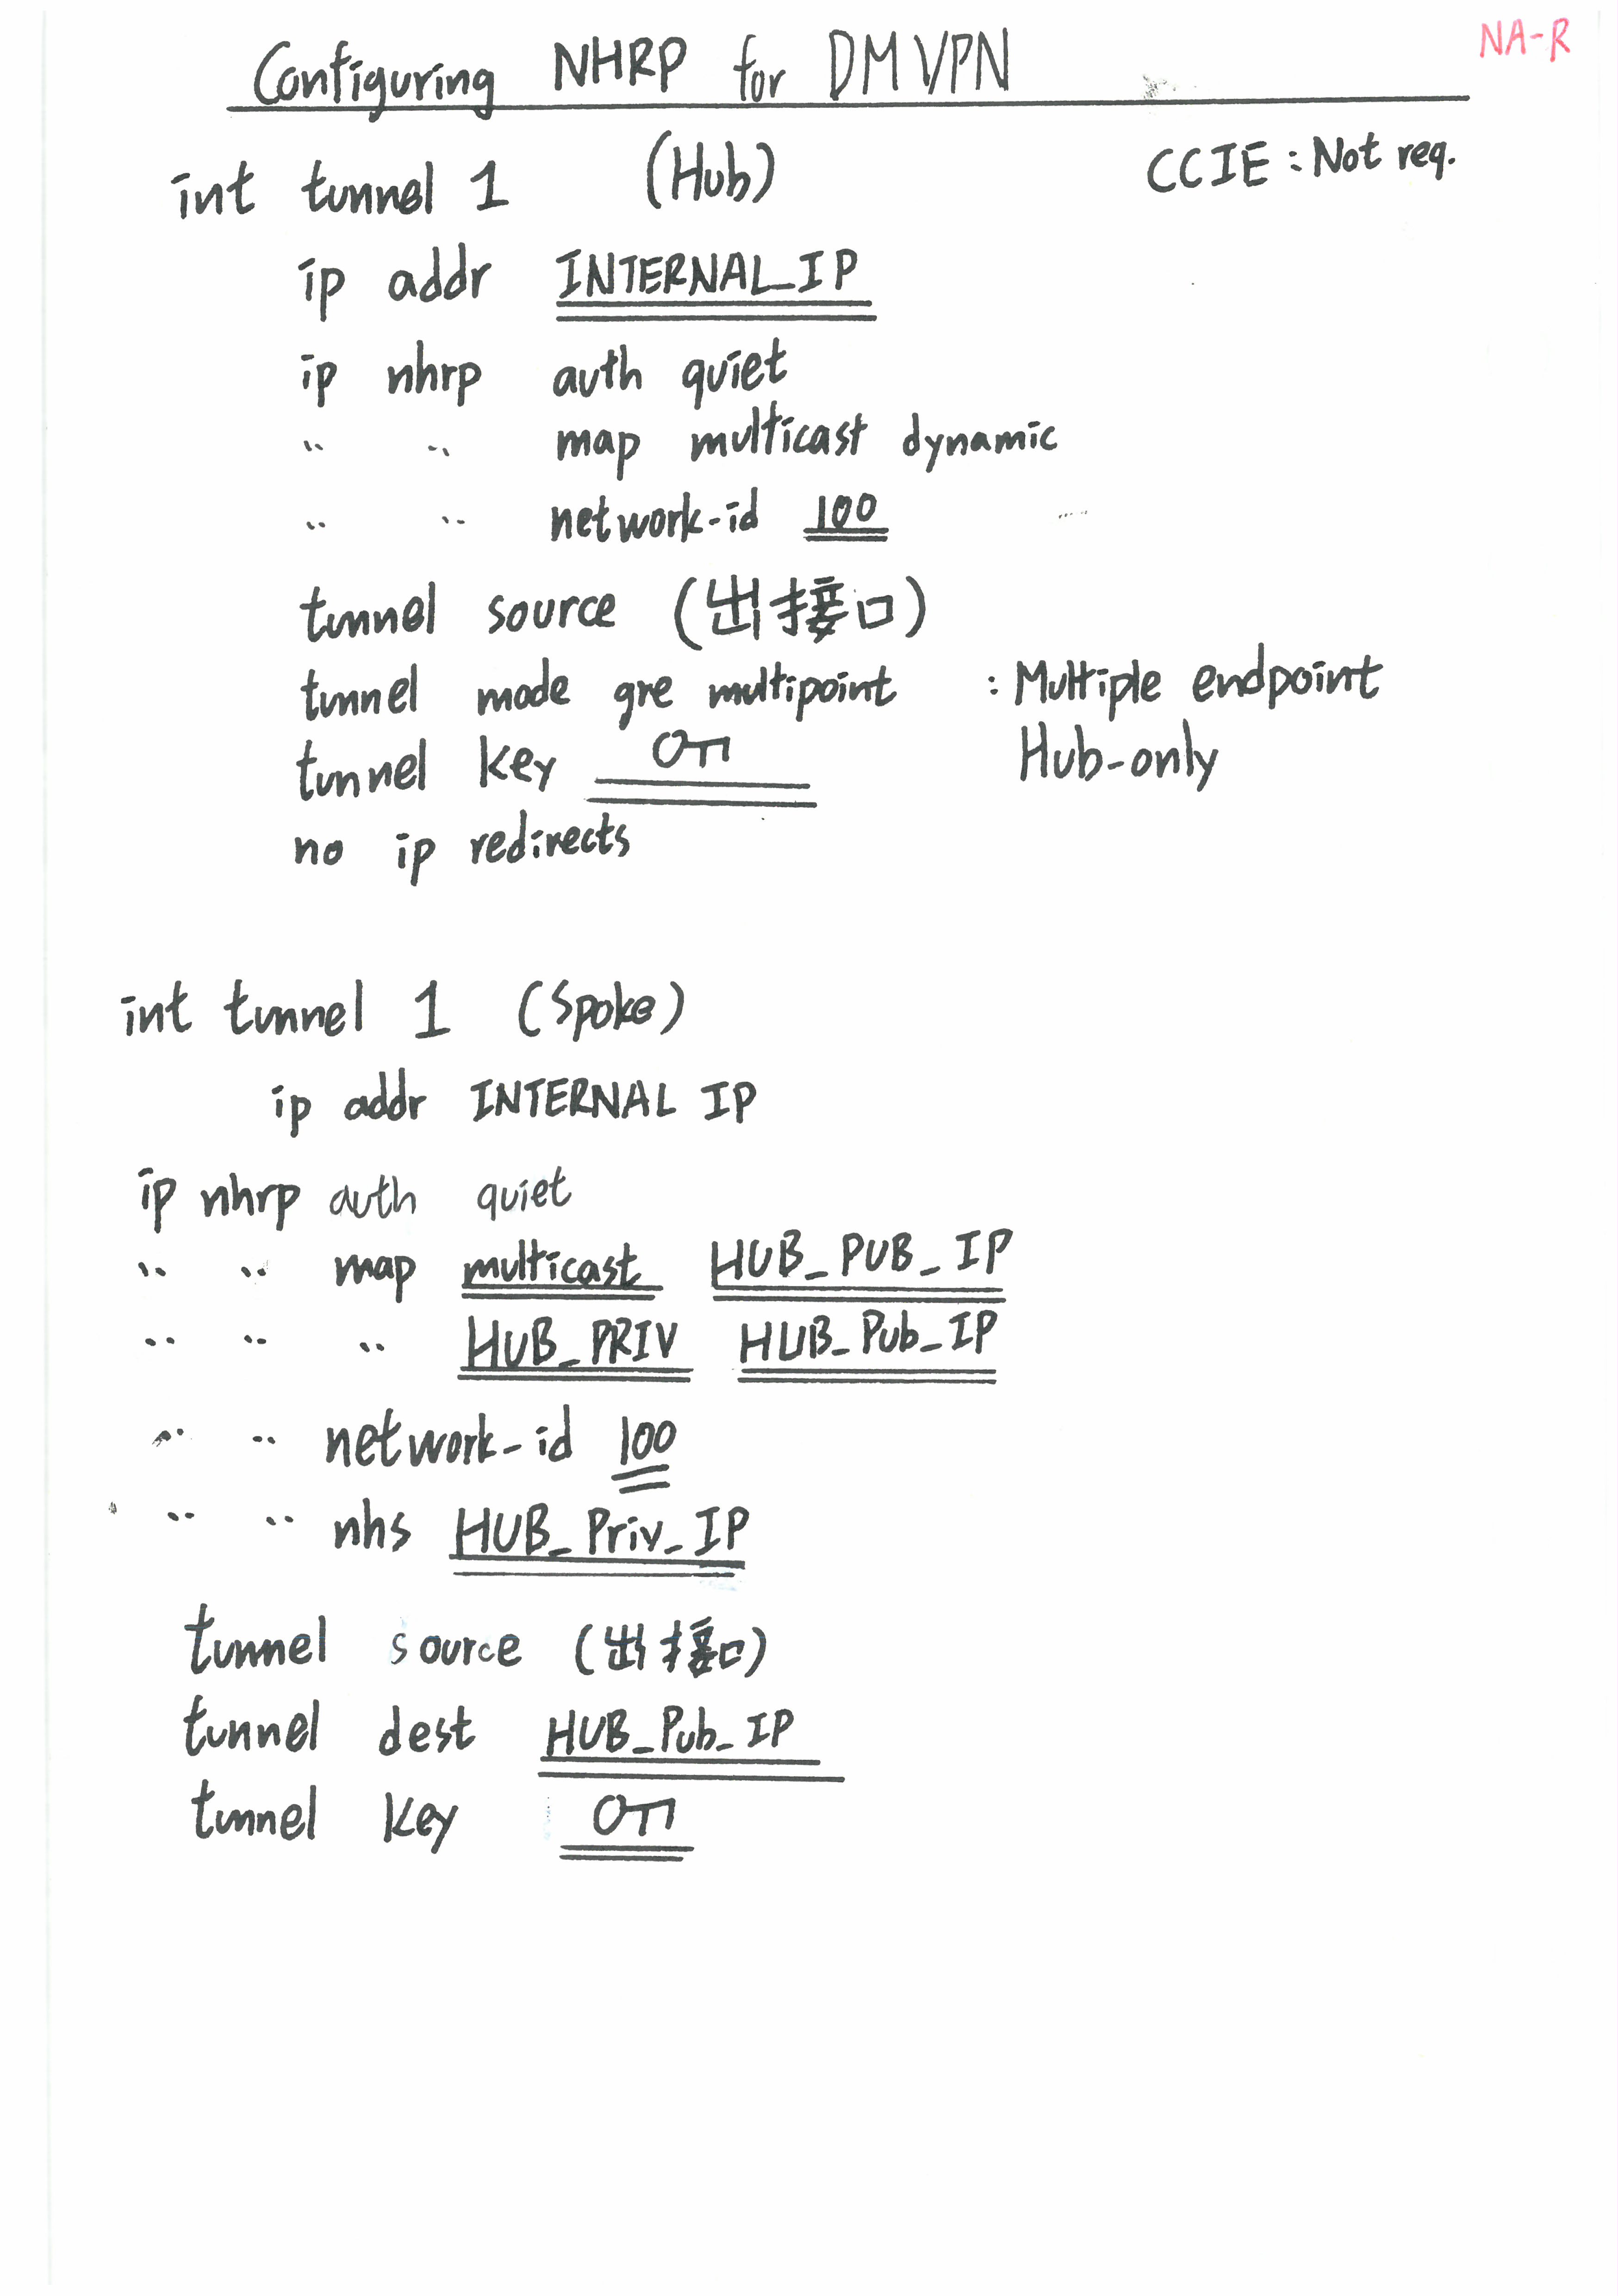 NA-R
Configuring NHRP for DMVPN
int tunnel 1 (Hub) CCIE : Not req.
ip addr INTERNAL_IP
ip nhrp auth quiet
" " map multicast dynamic
" " network-id 100
tunnel source (出接口)
tunnel mode gre multipoint : Multiple endpoint
Hub-only
tunnel key
no ip redirects
int tunnel 1 (Spoke)
ip addr INTERNAL IP
ip nhrp auth quiet
" " map multicast HUB_PUB_IP
" " " HUB_PRIV HUB_Pub_IP
" " network-id 100
" " nhs HUB_Priv_IP
tunnel source (出接口)
tunnel dest HUB_Pub_IP
tunnel key